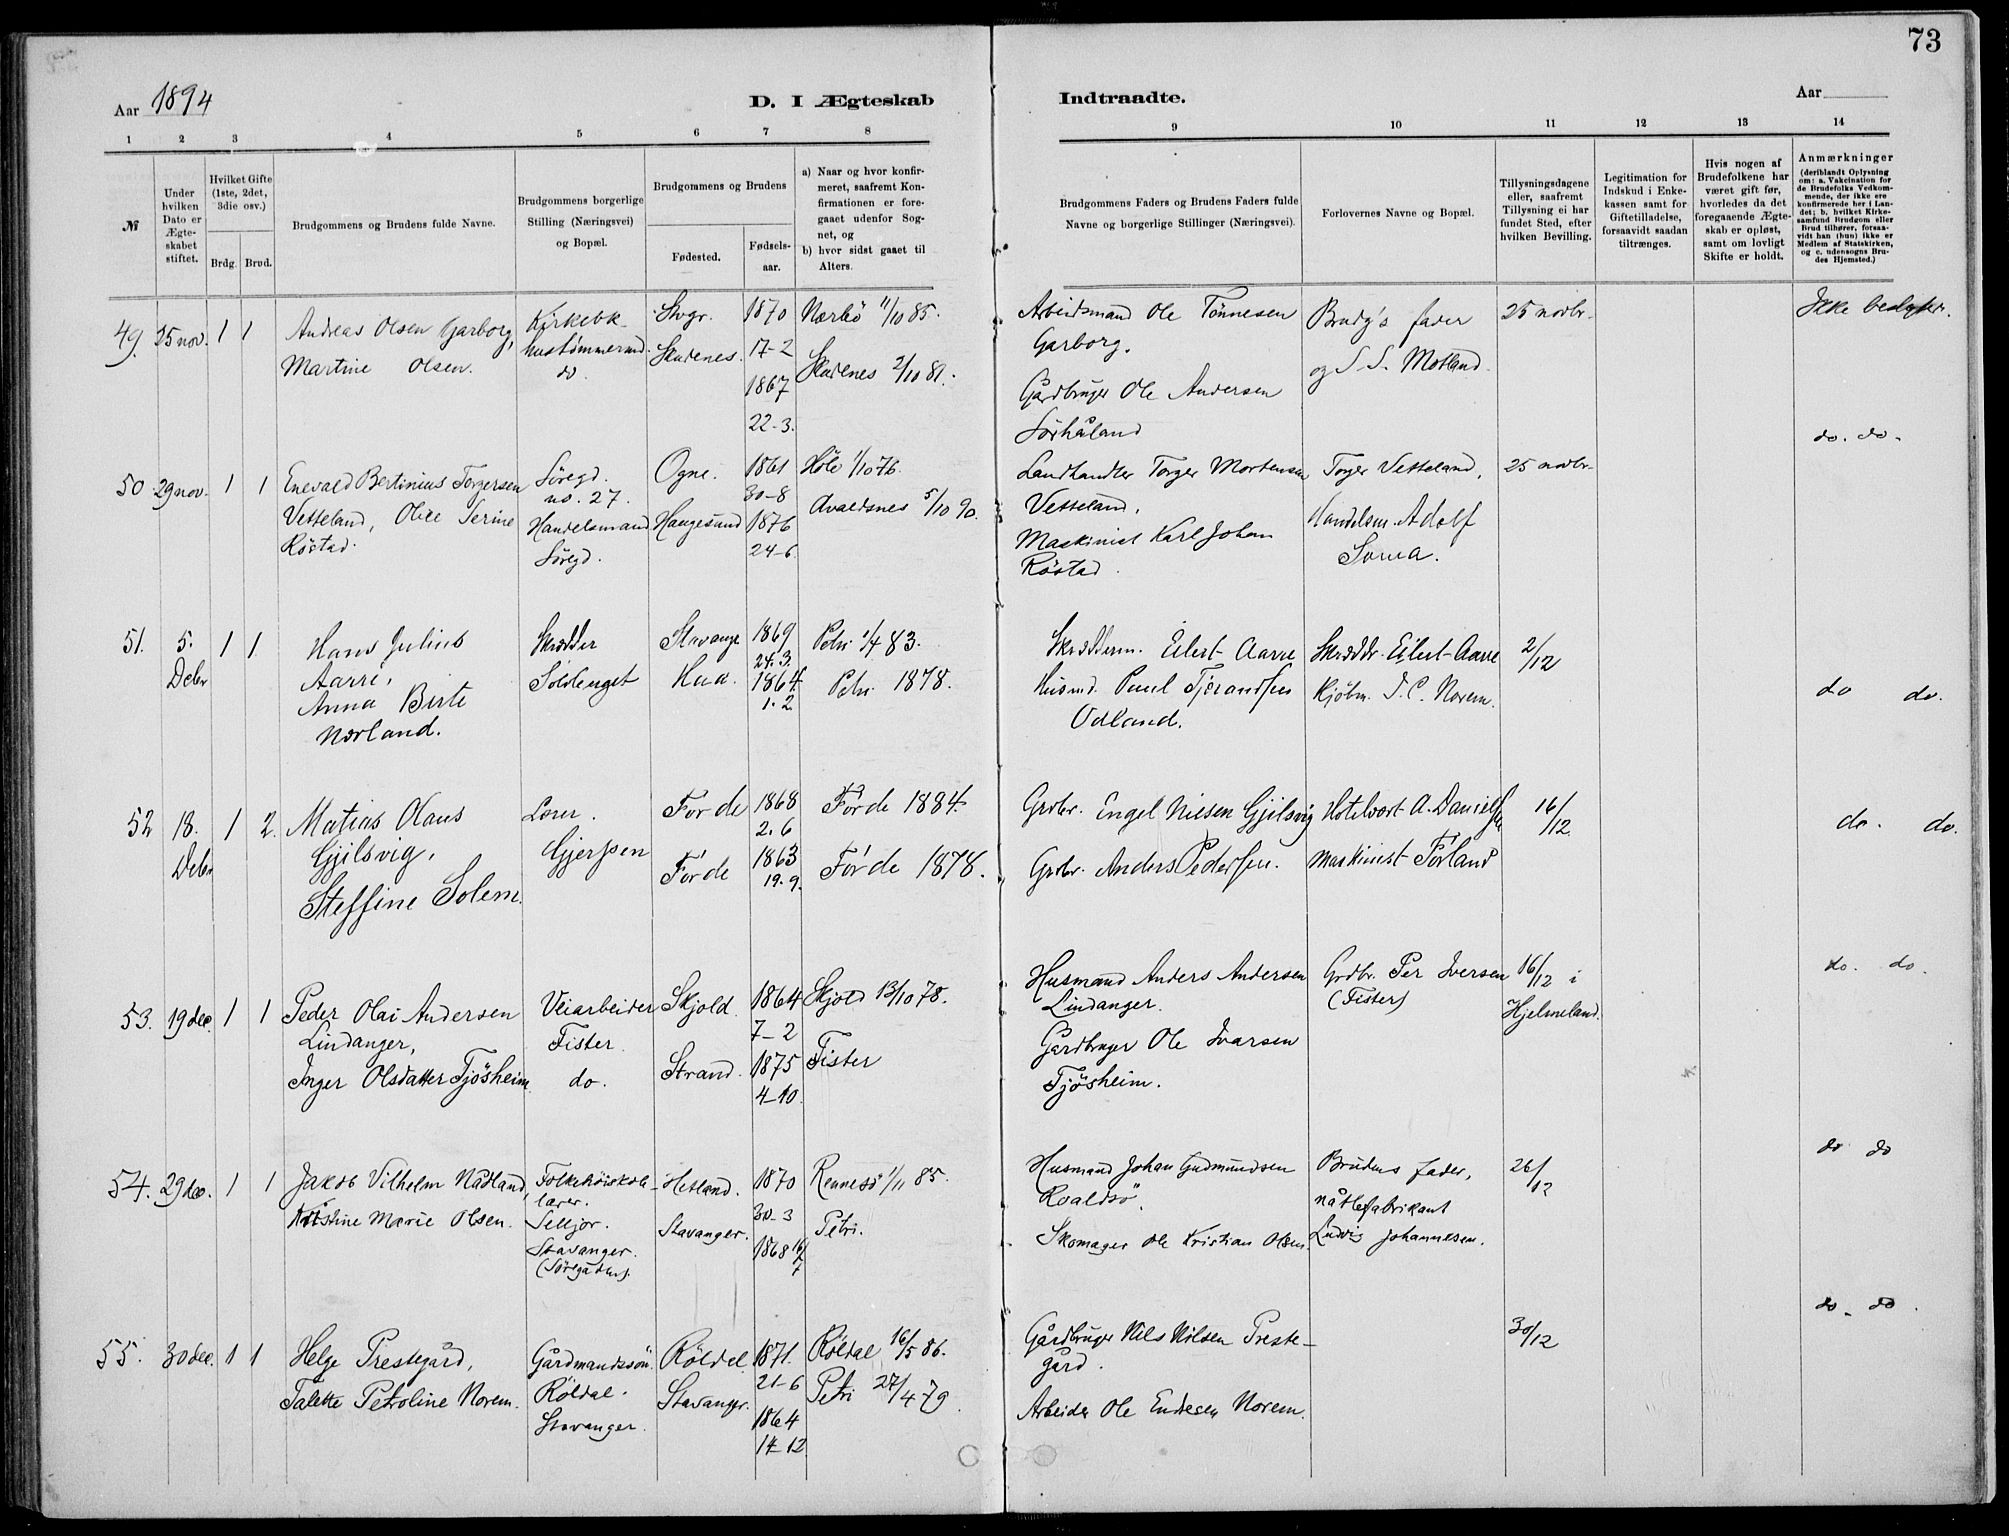 73
Aar 1894
D. I Ægteskab
Indtraadte.
Aar
1 2 3 4 5 6 7 8
9 10 11 12 13 14
№
Under hvilken Dato er Ægte-skabet stiftet.
Hvilket Gifte (1ste, 2det, 3die osv.)
Brdg. Brud.
Brudgommens og Brudens fulde Navne.
Brudgommens borgerlige Stilling (Næringsvei) og Bopæl.
Brudgommens og Brudens
Fødested.
Fødsels-aar.
a) Naar og hvor konfir-meret, saafremt Kon-firmationen er fore-gaaet udenfor Sog-net, og
b) hvor sidst gaaet til Alters.
Brudgommens Faders og Brudens Faders fulde Navne og borgerlige Stillinger (Næringsvei).
Forlovernes Navne og Bopæl.
Tillysningsdagene eller, saafremt Tillysning ei har fundet Sted, efter hvilken Bevilling.
Legitimation for Indskud i Enke-kassen samt for Giftetilladelse, forsaavidt saadan tiltrænges.
Hvis nogen af Brudefolkene har været gift før, hvorledes da det foregaaende Ægte-skab er opløst, samt om lovligt Skifte er holdt.
Anmærkninger
(deriblandt Oplysning om: a. Vakcination for de Brudefolks Vedkom-mende, der ikke ere konfirmerede her i Lan-det; b. hvilket Kirke-samfund Brudgom eller Brud tilhører, forsaa-vidt han (hun) ikke er Medlem af Statskirken, og c. udensogns Bru-des Hjemsted.)
49. 25 nov. 1 1
Andreas Olsen Garborg,
Martine Olsen.
Kirkebk.
hustømmermd.
do.
Stvgr.
Skudenes.
1870
17-2
1867
22-3.
Nærbö 11/10 85.
Skudenes 2/10 81.
Arbeidsmand Ole Tönnesen
Garborg.
Gårdbruger Ole Andersen
Sörhåland
Brudg's fader
og S. S. Motland.
25 novbr.
Ikke beslægtede.
50. 29 nov. 1 1
Enevald Bertinius Torgersen
Vetteland, Olice Serine
Röstad.
Söregd.
no. 27.
Handelsmand
Söregd.
Ogne.
Haugesund
1861
30-8
1876
24-6
Höle 1/10 76.
Avaldsnes 5/10 90.
Landhandler Torger Mortensen
Vetteland,
Maskinist Karl Johan
Röstad.
Torger Vetteland,
Handelsm. Adolf
Soma.
25 novbr.
do. do.
51. 5. Debr 1 1
Hans Julius
Aarre,
Anna Birte
Nærland.
Skrædder
Soldenget
Stavange
Haa.
1869
24. 3.
1864
1. 2.
Petri 1/4 83.
Petri 1878.
Skrædderm. Eilert Aarre
Husmd. Paul Tjerandsen
Odland.
Skræddr. Eilert Aarre
Kjöbm. T. C. Norem.
2/12
do do.
52 18. Debr 1 2.
Matias Olaus
Gjilsvig,
Steffine Solem.
Lærer.
Gjerpen
Förde
Förde
1868
2. 6
1863
19. 9.
Förde 1884.
Förde 1878.
Grdbr. Engel Nilsen Gjilsvig
Grdbr. Anders Pedersen.
Hotelvært A. Danielsen
Maskinist Förland
16/12.
do. do.
53. 19 dec. 1 1
Peder Olai Andersen
Lindanger,
Inger Olsdatter Tjösheim
Veiarbeider
Fister
do.
Skjold.
Strand.
1864
7-2
1875
4-10.
Skjold 13/10 78.
Fister
Husmand Anders Andersen
Lindanger.
Gårdbruger Ole Ivarsen
Tjösheim.
Grdbr. Per Iversen
(Fister)
16/12 i
Hjelmeland.
do. do.
54. 29 dec. 1 1
Jakob Vilhelm Nådland,
Kristine Marie Olsen.
Folkehöiskole-
lærer.
Seljor.
Stavanger.
(Söregaden).
Hetland.
Stavanger.
1870
30-3
1868 16/7
Rennesö 1/11 85.
Petri.
Husmand Johan Gudmundsen
Roaldsö.
Skomager Ole Kristian Olsen.
Brudens fader,
nåtlefabrikant
Ludvig Johannesen.
26/12
do do
55. 30 dec. 1 1
Helge Prestegård,
Talette Petroline Norem.
Gårdmandssön.
Röldal.
Stavanger.
Röldal
Stavanger.
1871.
21-6
1864
14-12
Röldal 16/5 86.
Petri 27/4 79.
Gårdbruger Nils Nilsen Preste-
gård.
Arbeider Ole Endresen Norem.
30/12
do - do.